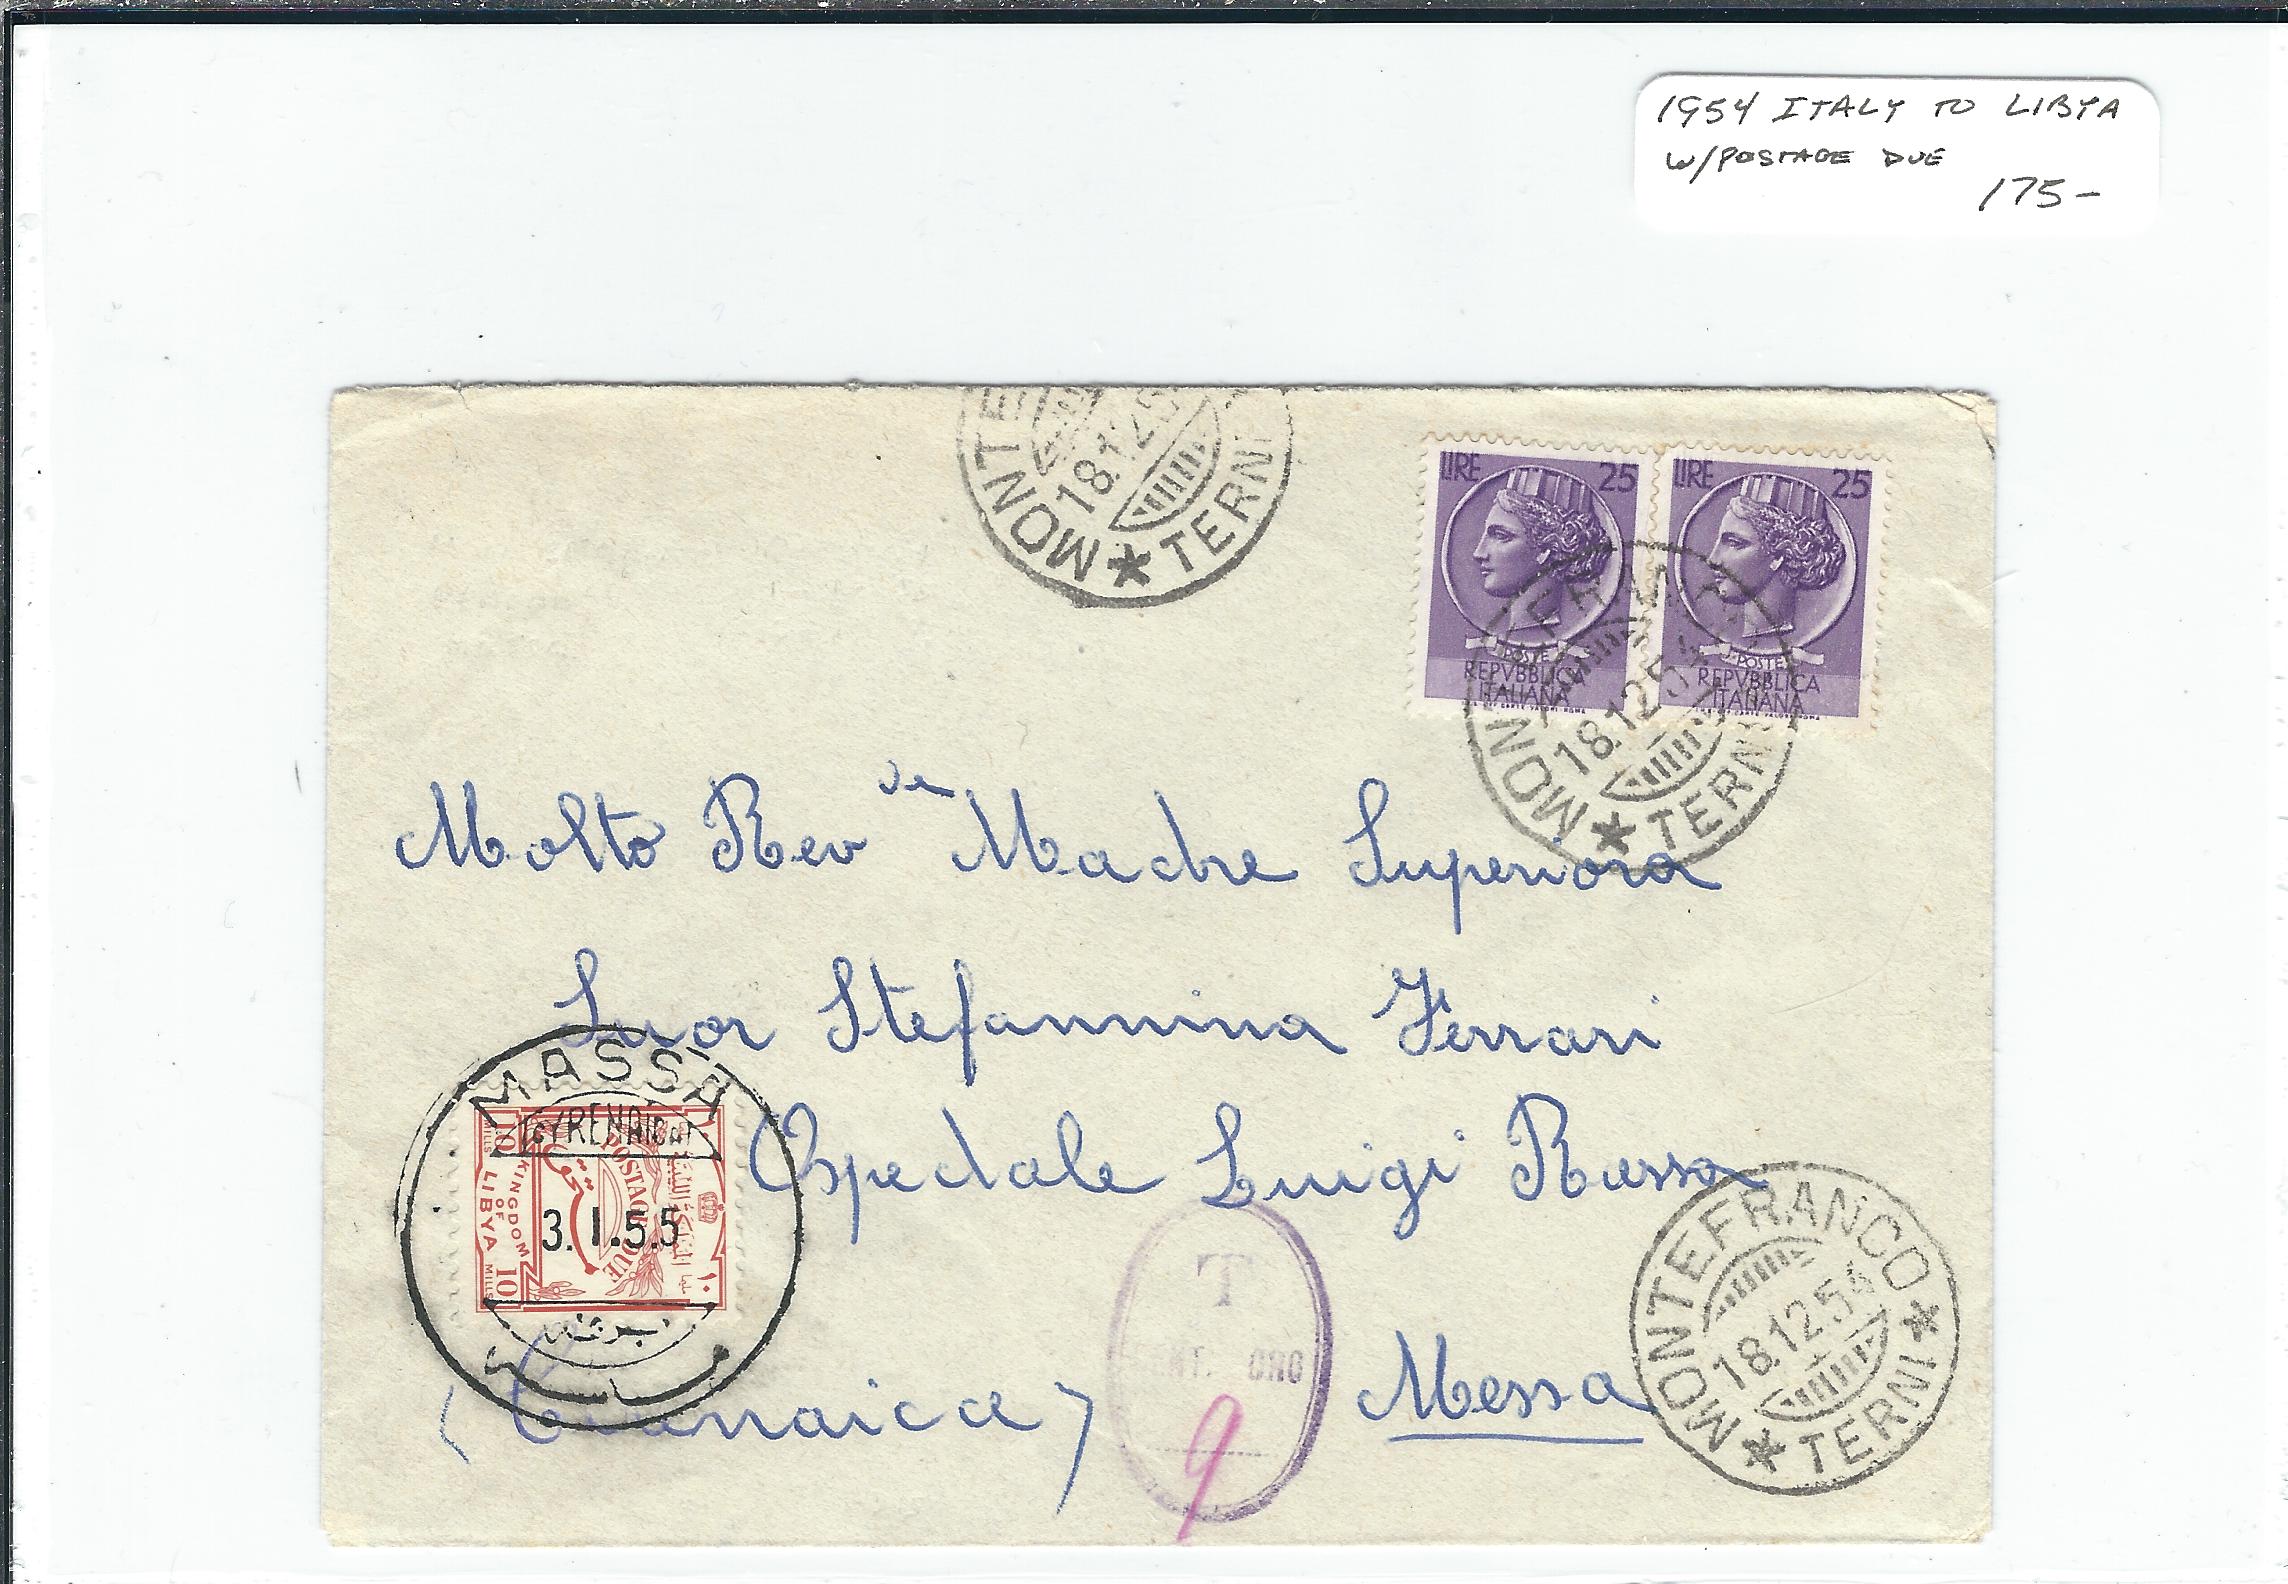 1954 ITALY TO LIBYA
W/POSTAGE DUE
175-
MONTE
18.12.5
* TERNI
LIRE 25
LIRE 25
POSTE
POSTE
REPVBBLICA
ITALIANA
REPVBBLICA
ITALIANA
18.12.5
MON * TERNI
Molto Rev de Madre Superiora
Suor Stefannina Ferrari
Ospedale Luigi Razza
MASSA
CYRENAICA
3.1.55
10 MILLS
KINGDOM
OF
LIBYA
10 MILLS
POSTAGE DUE
T
NT. ORO
9
(Cirenaica)
Messa
MONTEFRANCO
18.12.54
* TERNI *